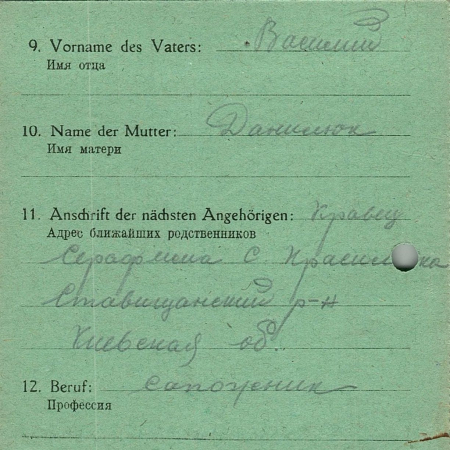 9. Vorname des Vaters: Василий
Имя отца
10. Name der Mutter: Данилюк
Имя матери
11. Anschrift der nächsten Angehörigen: Кравец
Адрес ближайших родственников
Серафима С. Красиловка
Ставищанский р-н
Киевская об.
12. Beruf: сапожник
Профессия